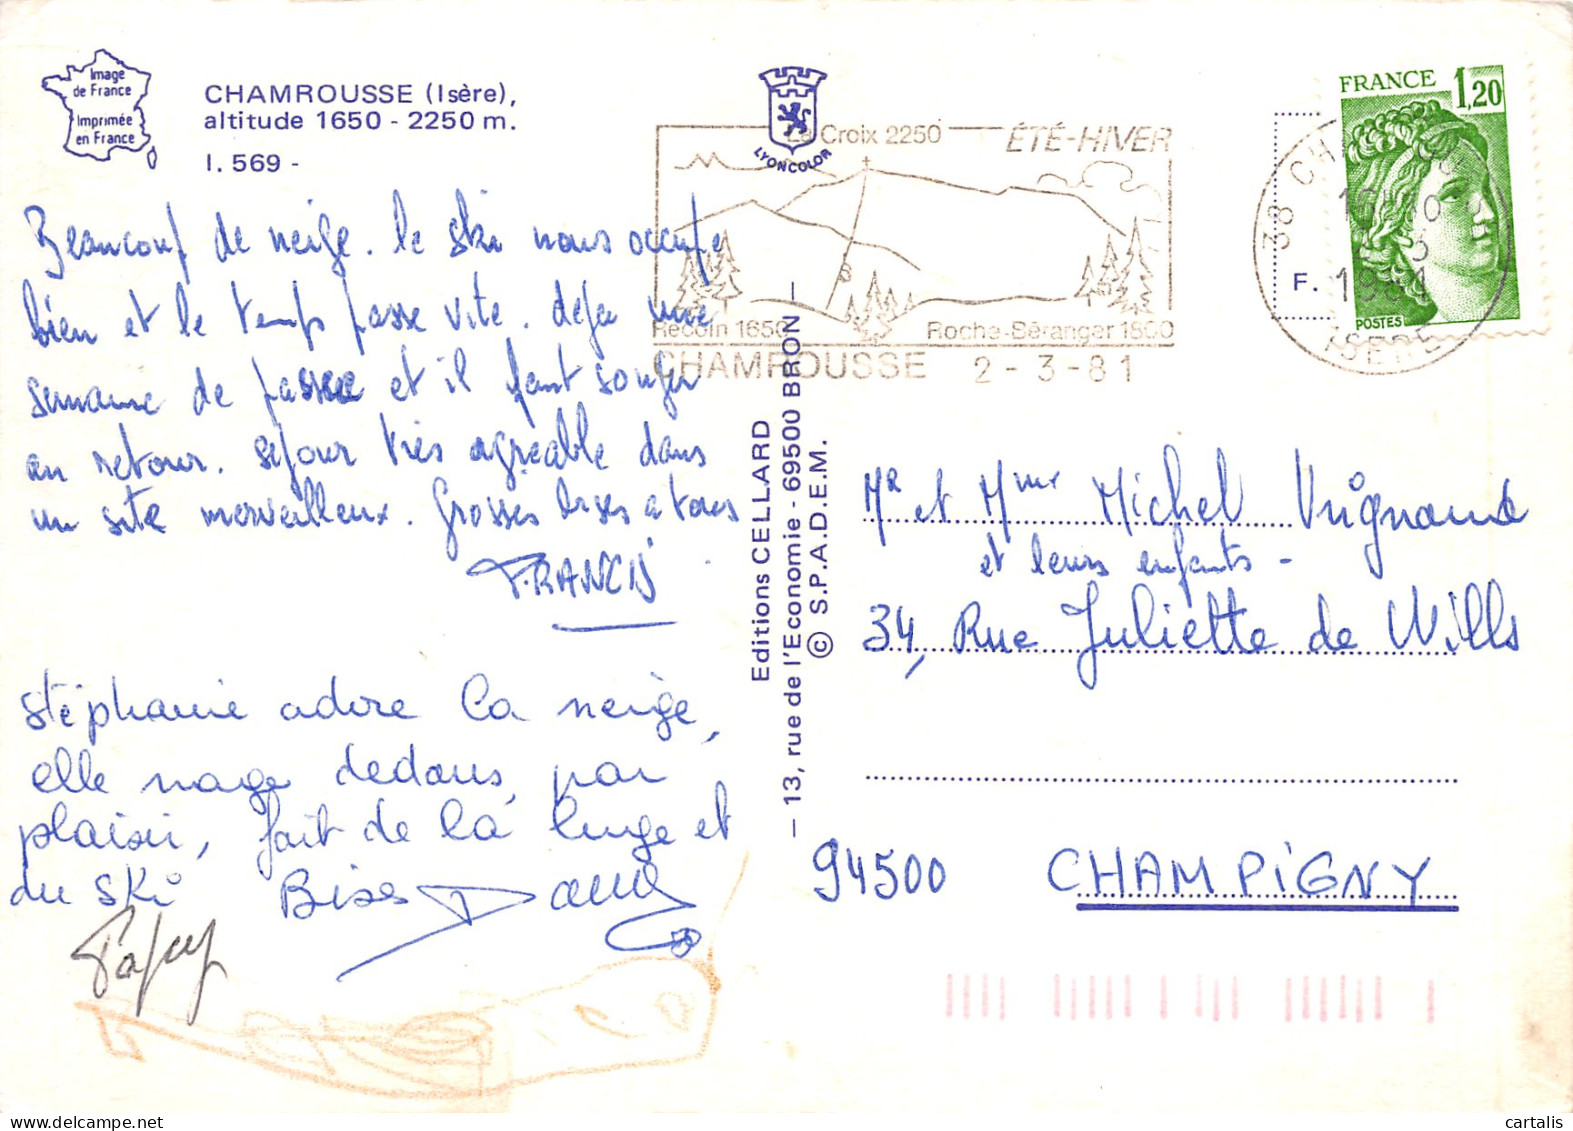 Image
de France
Imprimée
en France
CHAMROUSSE (Isère),
altitude 1650 - 2250 m.
I. 569 -
LYONCOLOR
La Croix 2250
ÉTÉ-HIVER
Recoin 1650
Roche-Béranger 1800
CHAMROUSSE 2 - 3 - 81
FRANCE 1,20
POSTES
38
1981
ISERE
F.
Beaucoup de neige. le ski nous occupe
bien et le temps passe vite. déjà une
semaine de passée et il faut songer
au retour. séjour très agréable dans
un site merveilleux. Grosses bises a tous
FRANCIS
Stéphanie adore la neige,
elle nage dedans, par
plaisir, fait de la luge et
du ski Bises
Papy
Editions CELLARD
— 13, rue de l'Economie - 69500 BRON —
© S.P.A.D.E.M.
Mr et Mme Michel Vrignaud
et leurs enfants -
34, Rue Juliette de Wills
94500 CHAMPIGNY
cartalis